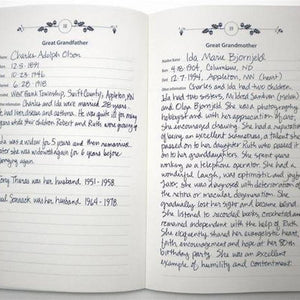 38
Great Grandfather
Name: Charles Adolph Olson
12-3-1891
10-23-1946
6-28-1918
West Bank Township, Swift County, Appleton, MN
Other information Charles and Ida were married 28 years.
had heart disease and asthma. He was quite ill for many
years while their children Robert and Ruth were growing up.
Ida was a widow for 5 years and then remarried.
she was widowed again for 6 years before
marrying again.
Tony Thomas was her husband 1951-1958.
Paul was her husband 1964-1978.
39
Great Grandmother
Name Ida Marie Bjornjeld
4-18-1904, Columbus, ND
12-7-1994, Appleton, MN (heart)
Other information Charles and Ida had two children.
Ida had two sisters, Mildred Sandven (Nelson)
and Olga Bjornjeld. She was a photography
hobbyist and with her appreciation of art,
she encouraged drawing. She had a reputation
of being an excellent seamstress, a talent she
passed on to her daughter Ruth who passed it
on to her granddaughters. She spent years
working as a telephone operator. She had a
wonderful laugh, was optimistic and joyful.
Later, she was diagnosed with deterioration of
the retina or macular degeneration. She
gradually lost her sight and became blind.
She listened to recorded books, crocheted and
remained independent with the help of Ruth.
She eloquently shared her evangelistic heart,
faith, encouragement and hope at her 80th
birthday party. She was an excellent
example of humility and contentment.